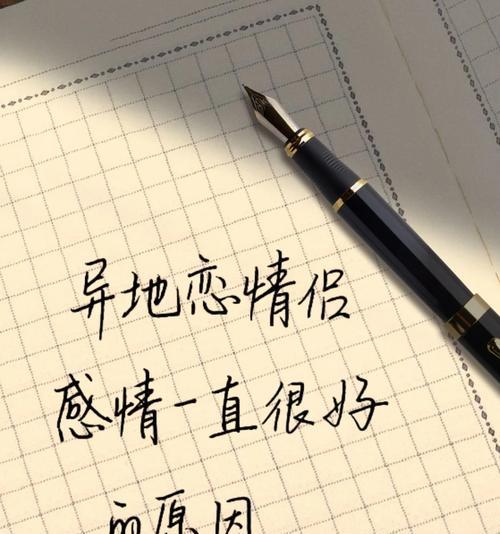 异地恋情侣
感情一直很好
的原因